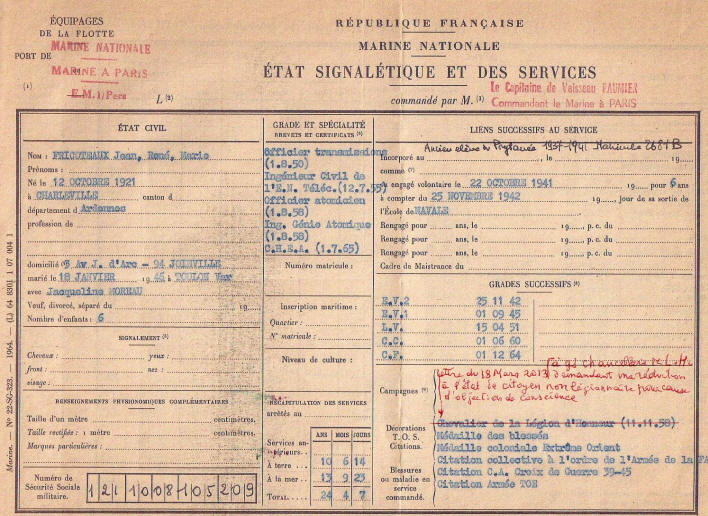 ÉQUIPAGES
DE LA FLOTTE
MARINE NATIONALE
PORT DE
MARINE A PARIS
(1)
E.M.1/Pers
L (2)
RÉPUBLIQUE FRANÇAISE
MARINE NATIONALE
ÉTAT SIGNALÉTIQUE ET DES SERVICES
commandé par M. (3)
Le Capitaine de Vaisseau FAUMIER
Commandant la Marine à PARIS
ÉTAT CIVIL
NOM : FRICOTEAUX Jean, René, Marie
Prénoms :
Né le 12 OCTOBRE 1921
à CHARLEVILLE canton d
département d Ardennes
profession de
domicilié 5 Av J. d'Arc - 94 JOINVILLE
marié le 18 JANVIER 1946 à TOULON Var
avec Jacqueline MOREAU
Veuf, divorcé, séparé du 19
Nombre d'enfants : 6
SIGNALEMENT
Cheveux : yeux :
front : nez :
visage :
RENSEIGNEMENTS PHYSIONOMIQUES COMPLÉMENTAIRES
Taille d'un mètre centimètres.
Taille rectifiée : 1 mètre centimètres.
Marques particulières :
Numéro de
Sécurité Sociale
militaire.
1 21 10 08 105 209
GRADE ET SPÉCIALITÉ
BREVETS ET CERTIFICATS
Officier transmissions
(1.8.50)
Ingénieur Civil de
l'E.N. Téléc.(12.7.55)
Officier atomicien
(1.8.58)
Ing. Génie Atomique
(1.8.58)
C.H.E.A. (1.7.65)
Numéro matricule :
Inscription maritime :
Quartier :
N° matricule :
Niveau de culture :
RÉCAPITULATION DES SERVICES
arrêtés au
ANS MOIS JOURS
Services antérieurs
A terre 10 6 14
A la mer 13 9 23
TOTAL 24 4 7
LIENS SUCCESSIFS AU SERVICE
Ancien élève du Prytanée 1937-1941 Matricule 2681B
Incorporé au , le 19
comme
engagé volontaire le 22 OCTOBRE 1941 19 pour 6 ans
à compter du 25 NOVEMBRE 1942 19 jour de sa sortie de
l'École de NAVALE
Rengagé pour ans, le 19 p. c. du
Rengagé pour ans, le 19 p. c. du
Rengagé pour ans, le 19 p. c. du
Cadre de Maistrance du
GRADES SUCCESSIFS
E.V.2 25 11 42
E.V.1 01 09 45
L.V. 15 04 51
C.C. 01 06 60
C.F. 01 12 64
à gd chancellerie de L.H.
Lettre du 18 Mars 2013 demandant ma réduction
à l'état de citoyen non légionnaire pour cause
d'objection de conscience
Campagnes
Décorations
T. O. S.
Citations.
Blessures
ou maladie en
service
commandé.
Chevalier de la Légion d'Honneur (11.11.58)
Médaille des blessés
Médaille coloniale Extrême Orient
Citation collective à l'ordre de l'Armée de la FA
Citation C.A. Croix de Guerre 39-45
Citation Armée TOE
Marine. — N° 22-SC-323. — 1964. — (L) 64 8301 1 07 004 1